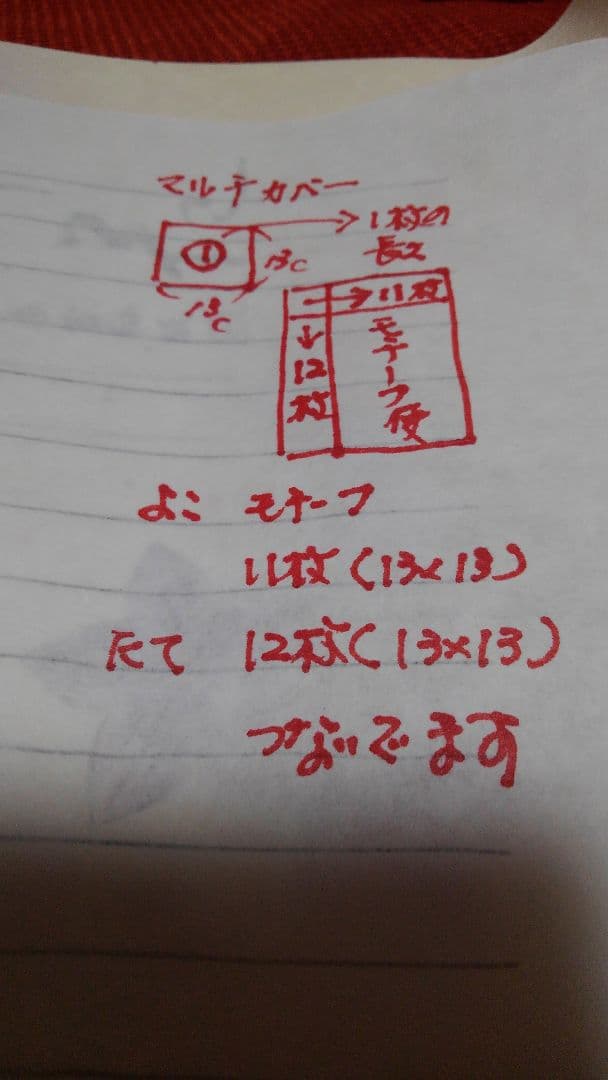 マルチカバー
① 13c
13c
→ 1枚の
長さ
→11枚
↓12枚
モチーフ使
よこ モチーフ
11枚(13×13)
たて 12枚(13×13)
つないでます